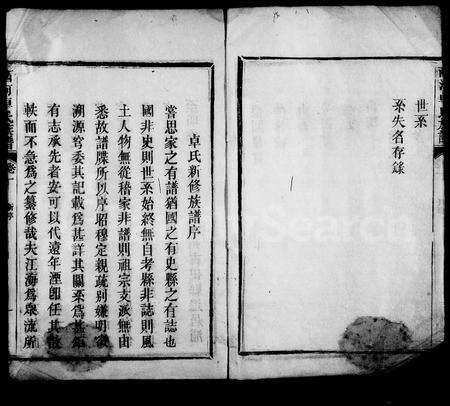 世系
系失名存錄
卓氏新修族譜序
嘗思家之有譜猶國之有史縣之有誌也
國非史則世系始終無自考縣非誌則風
土人物無從稽家非譜則祖宗支派無由
悉故譜牒所以序昭穆定親疏別嫌明
溯源窮委其記載為甚詳其關係為甚
有志承先者安可以代遠年湮卽任其
軼而不急為之纂修哉夫江海為眾流所